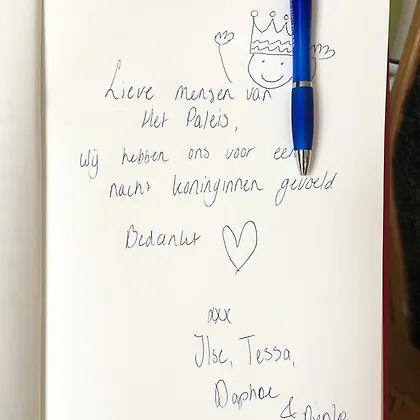 Lieve mensen van
Het Paleis,
Wij hebben ons voor een
nacht koninginnen gevoeld
Bedankt
xxx
Ilse, Tessa,
Daphne
&